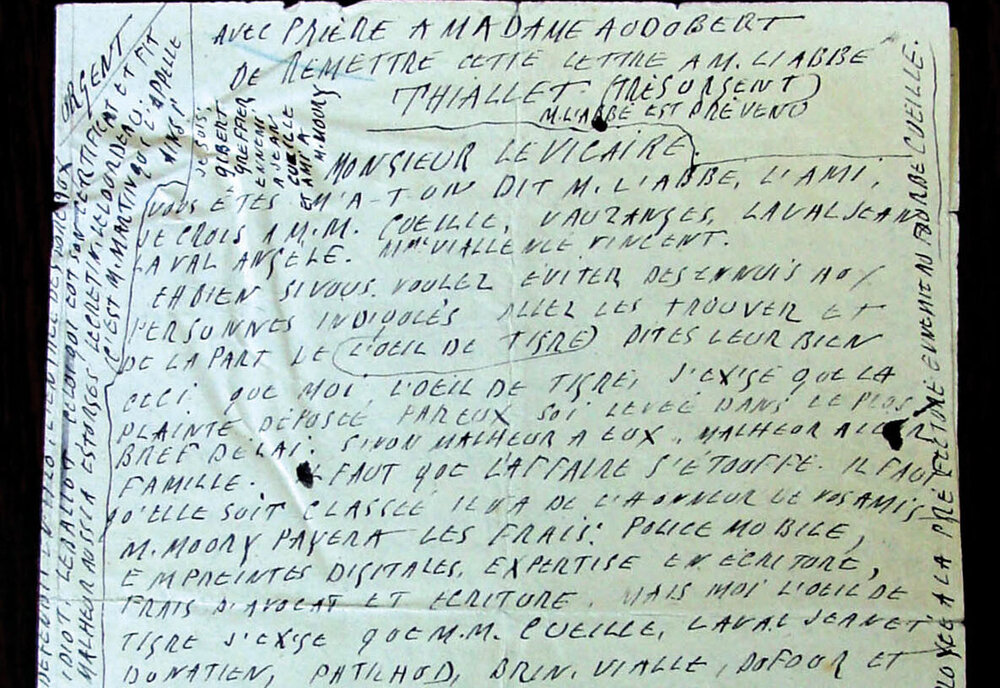 AVEC PRIÈRE A MADAME AUDOBERT
DE REMETTRE CETTE LETTRE A M. L'ABBÉ
THIALLET (TRÈS URGENT)
M. L'ABBÉ EST PREVENU
MONSIEUR LE VICAIRE,
VOUS ETES M'A-T-ON DIT M. L'ABBE, L'AMI,
JE CROIS A M.M. CUEILLE, VAURANGES, LAVAL JEAN
LAVAL ANGÈLE. MME VIALLE NÉE VINCENT.
EH BIEN SI VOUS VOULEZ ÉVITER DES ENNUIS AUX
PERSONNES INDIQUÉS ALLEZ LES TROUVER ET
DE LA PART LE (L'OEIL DE TIGRE) DITES LEUR BIEN
CECI QUE MOI, L'OEIL DE TIGRE, J'EXIGE QUE LA
PLAINTE DÉPOSÉE PAR EUX SOI LEVÉE DANS LE PLUS
BREF DÉLAI. SINON MALHEUR A EUX. MALHEUR A LEUR
FAMILLE. IL FAUT QUE L'AFFAIRE S'ÉTOUFFE. IL FAUT
QU'ELLE SOIT CLASSÉE IL Y A DE L'HONNEUR DE VOS AMIS
M. MOURY PAYERA LES FRAIS: POLICE MOBILE,
EMPREINTES DIGITALES, EXPERTISE EN ECRITURE,
FRAIS D'AVOCAT ET ECRITURE. MAIS MOI L'OEIL DE
TIGRE J'EXIGE QUE M.M. CUEILLE, LAVAL JEAN ET
DONATIEN, PATILHOD, BRIN, VIALLE, DUFOUR ET
JE SUIS
GIBERT
GREFFIER
ENNEMI
A JEAN
CUEILLE
ET AMI A
M. MOURY
URGENT
IDIOT LEBALLOT CELUI QUI EST SON CERTIFICAT ET FIT
MALHEUR AUSSI A ESTORGES LE CRÉTIN LE LOURDEAU.
(C'EST M. MARTIN QUI L'APPELLE
AINSI"
A LA PRÉFECTURE EVVENIT AU POURBE CUEILLE.